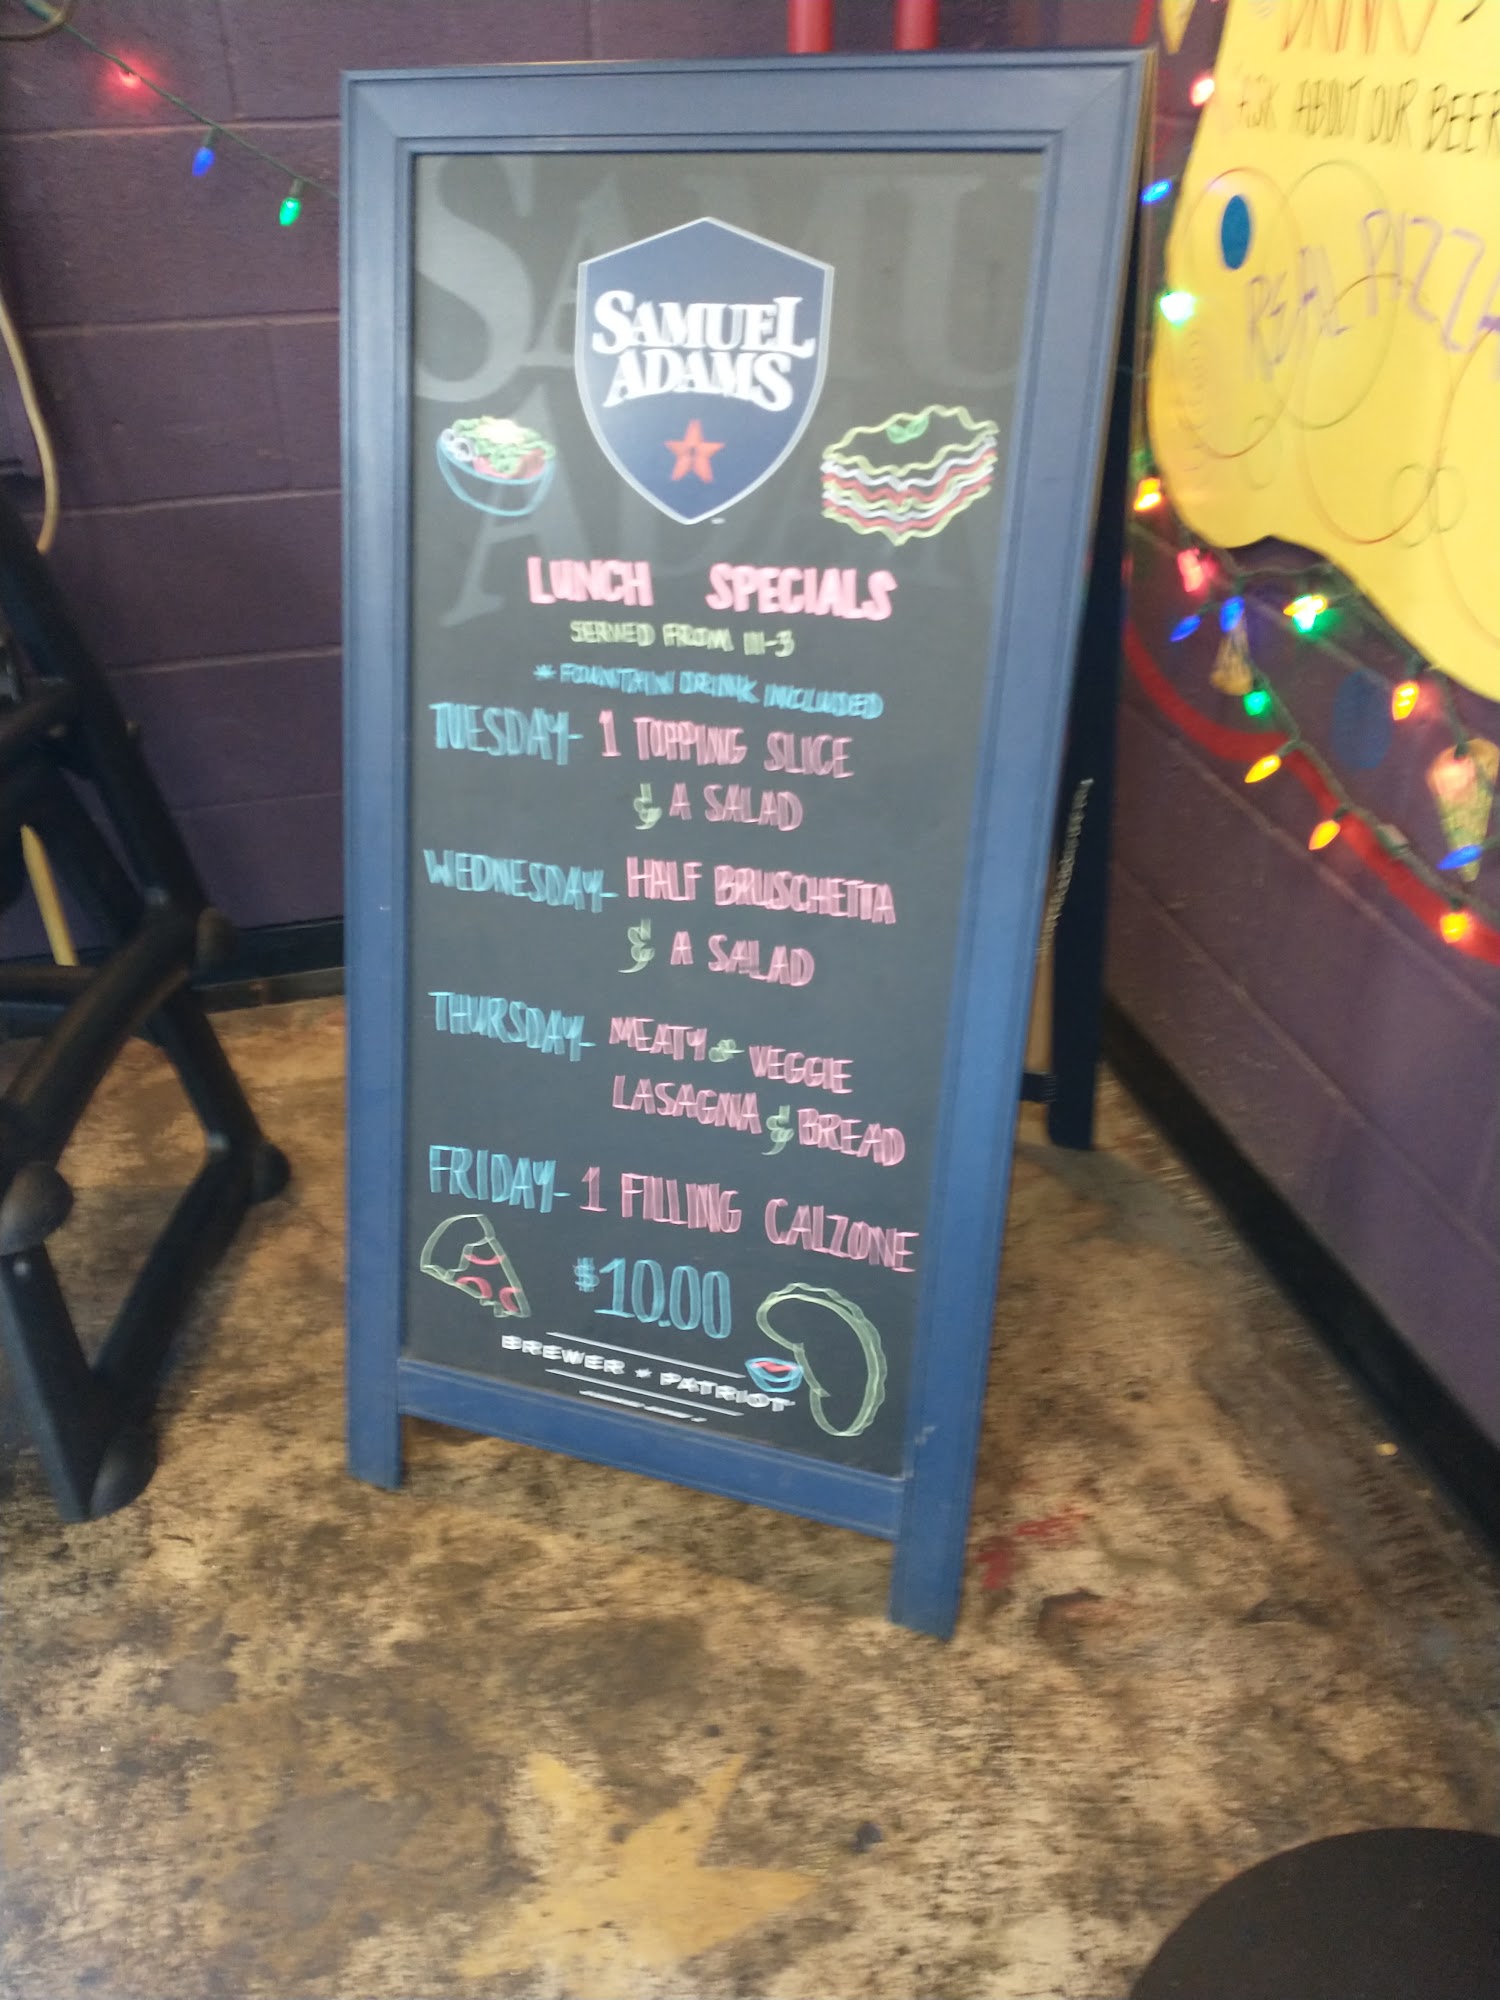 SAMUEL
ADAMS
LUNCH SPECIALS
SERVED FROM 11-3
* FOUNTAIN DRINK INCLUDED
TUESDAY- 1 TOPPING SLICE
& A SALAD
WEDNESDAY- HALF BRUSCHETTA
& A SALAD
THURSDAY- MEATY or VEGGIE
LASAGNA & BREAD
FRIDAY- 1 FILLING CALZONE
$10.00
BREWER ★ PATRIOT
ASK ABOUT OUR BEER
REAL PIZZA